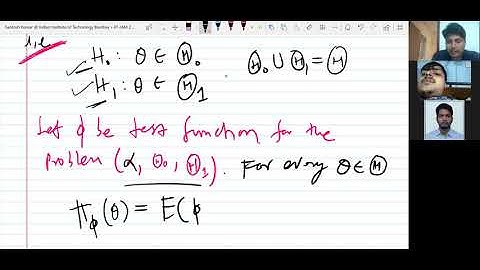 Santosh Kumar @ Indian Institute of Technology Bombay - IIT-JAM 2...
i,e
H₀ : θ ∈ Θ₀ Θ₀ ∪ Θ₁ = Θ
H₁ : θ ∈ Θ₁
Let ϕ be test function for the
problem (α, Θ₀, Θ₁). For every θ ∈ Θ
π_ϕ(θ) = E(ϕ